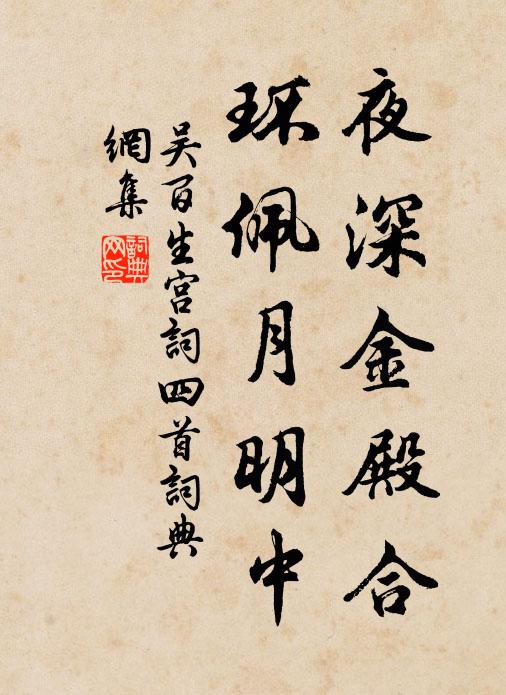 夜深金殿合
环佩月明中
吴百生宫詞四首詞典
網集
詞典
网印